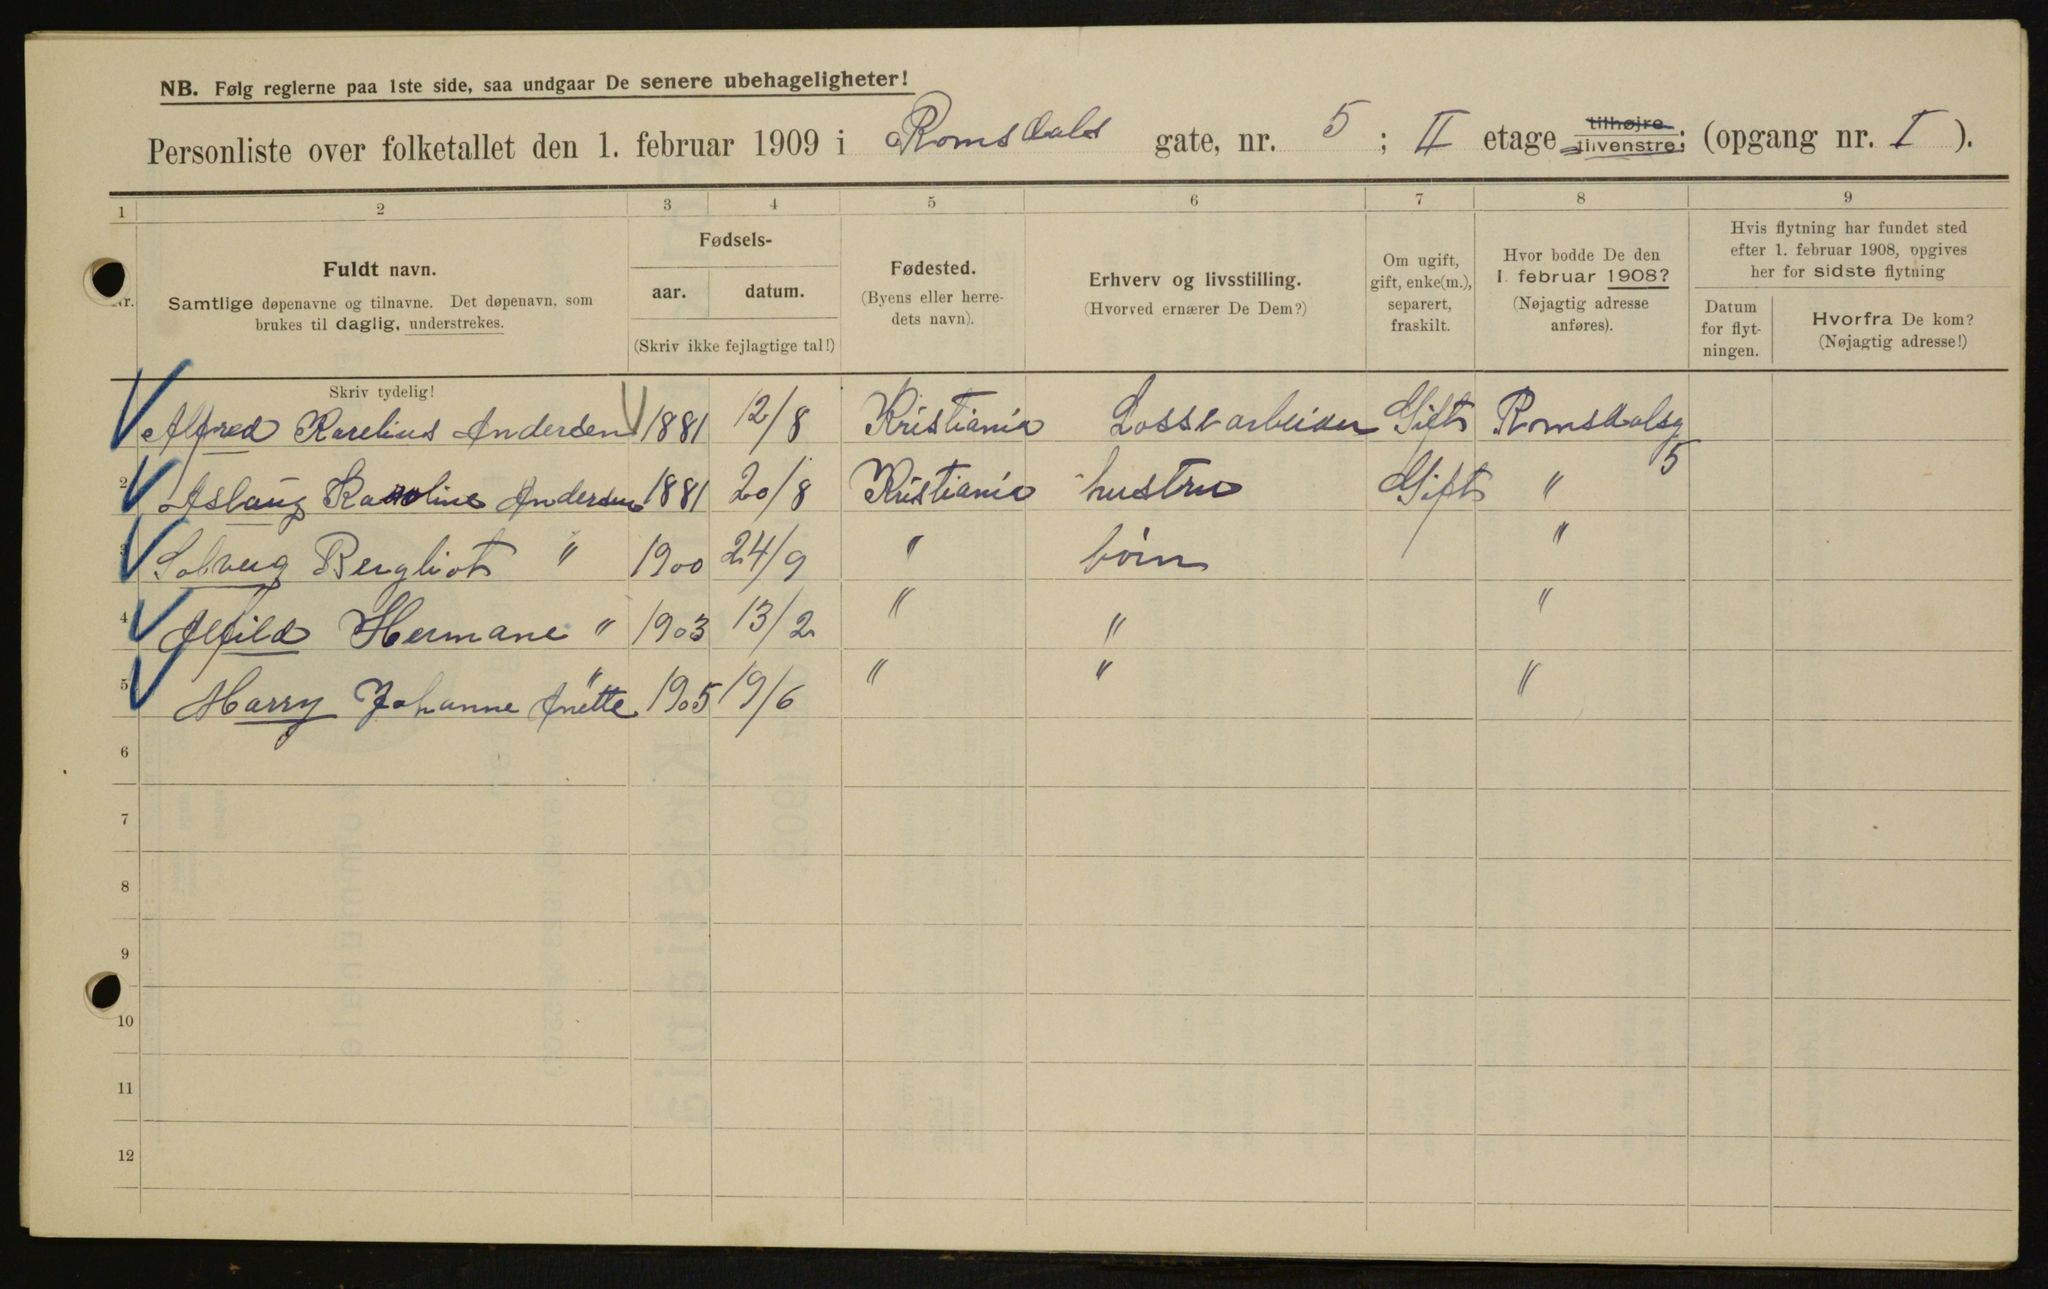 NB. Følg reglerne paa 1ste side, saa undgaar De senere ubehageligheter!
Personliste over folketallet den 1. februar 1909 i Romsdals gate, nr. 5 ; II etage tilhøjre tilvenstre; (opgang nr. I ).
1 2 3 4 5 6 7 8 9
Nr.
Fuldt navn.
Samtlige døpenavne og tilnavne. Det døpenavn, som
brukes til daglig, understrekes.
Fødsels-
aar. datum.
(Skriv ikke fejlagtige tal!)
Fødested.
(Byens eller herre-
dets navn).
Erhverv og livsstilling.
(Hvorved ernærer De Dem?)
Om ugift,
gift, enke(m.),
separert,
fraskilt.
Hvor bodde De den
1. februar 1908?
(Nøjagtig adresse
anføres).
Hvis flytning har fundet sted
efter 1. februar 1908, opgives
her for sidste flytning
Datum
for flyt-
ningen.
Hvorfra De kom?
(Nøjagtig adresse!)
Skriv tydelig!
Alfred Karelius Andersen 1881 12/8 Kristiania Lossearbeider Gift Romsdalsg 5
2 Aslaug Karoline Andersen 1881 20/8 Kristiania hustru Gift "
3 Solveig Bergliot " 1900 24/9 " börn "
4 Alfild Hermane " 1903 13/2 " " "
5 Harry Johanne Anette " 1905 19/6 " " "
6
7
8
9
10
11
12